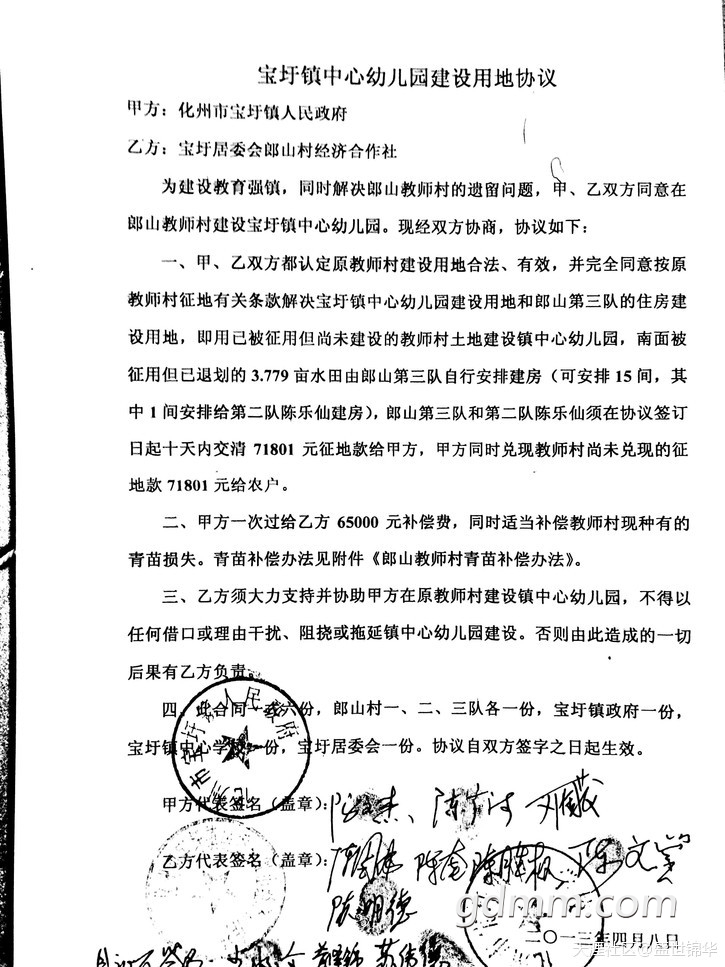 宝圩镇中心幼儿园建设用地协议
甲方：化州市宝圩镇人民政府
乙方：宝圩居委会郎山村经济合作社
为建设教育强镇，同时解决郎山教师村的遗留问题，甲、乙双方同意在
郎山教师村建设宝圩镇中心幼儿园。现经双方协商，协议如下：
一、甲、乙双方都认定原教师村建设用地合法、有效，并完全同意按原
教师村征地有关条款解决宝圩镇中心幼儿园建设用地和郎山第三队的住房建
设用地，即用已被征用但尚未建设的教师村土地建设镇中心幼儿园，南面被
征用但已退划的 3.779 亩水田由郎山第三队自行安排建房（可安排 15 间，其
中 1 间安排给第二队陈乐仙建房），郎山第三队和第二队陈乐仙须在协议签订
日起十天内交清 71801 元征地款给甲方，甲方同时兑现教师村尚未兑现的征
地款 71801 元给农户。
二、甲方一次过给乙方 65000 元补偿费，同时适当补偿教师村现种有的
青苗损失。青苗补偿办法见附件《郎山教师村青苗补偿办法》。
三、乙方须大力支持并协助甲方在原教师村建设镇中心幼儿园，不得以
任何借口或理由干扰、阻挠或拖延镇中心幼儿园建设。否则由此造成的一切
后果有乙方负责。
四、此合同一式六份，郎山村一、二、三队各一份，宝圩镇政府一份，
宝圩镇中心学校一份，宝圩居委会一份。协议自双方签字之日起生效。
甲方代表签名（盖章）：
乙方代表签名（盖章）：
二〇一三年四月八日
gdmm.com
天涯社区@盛世锦华